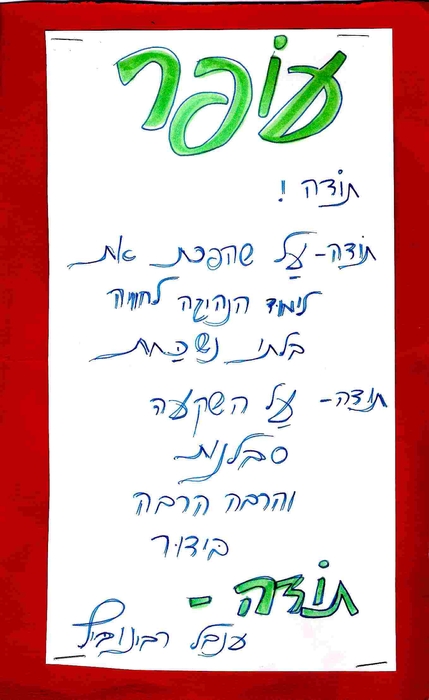 עוֹפר
תוֹדה !
תוֹדה - עָל שהפכת את
לימוד הנהיגה לחוויה
בלתי נשכַחת
תודה - עָל השקעה
סבלנות
והרבה הרבה
בִּידוּר
תוֹדה -
ענבל רבינוביץ